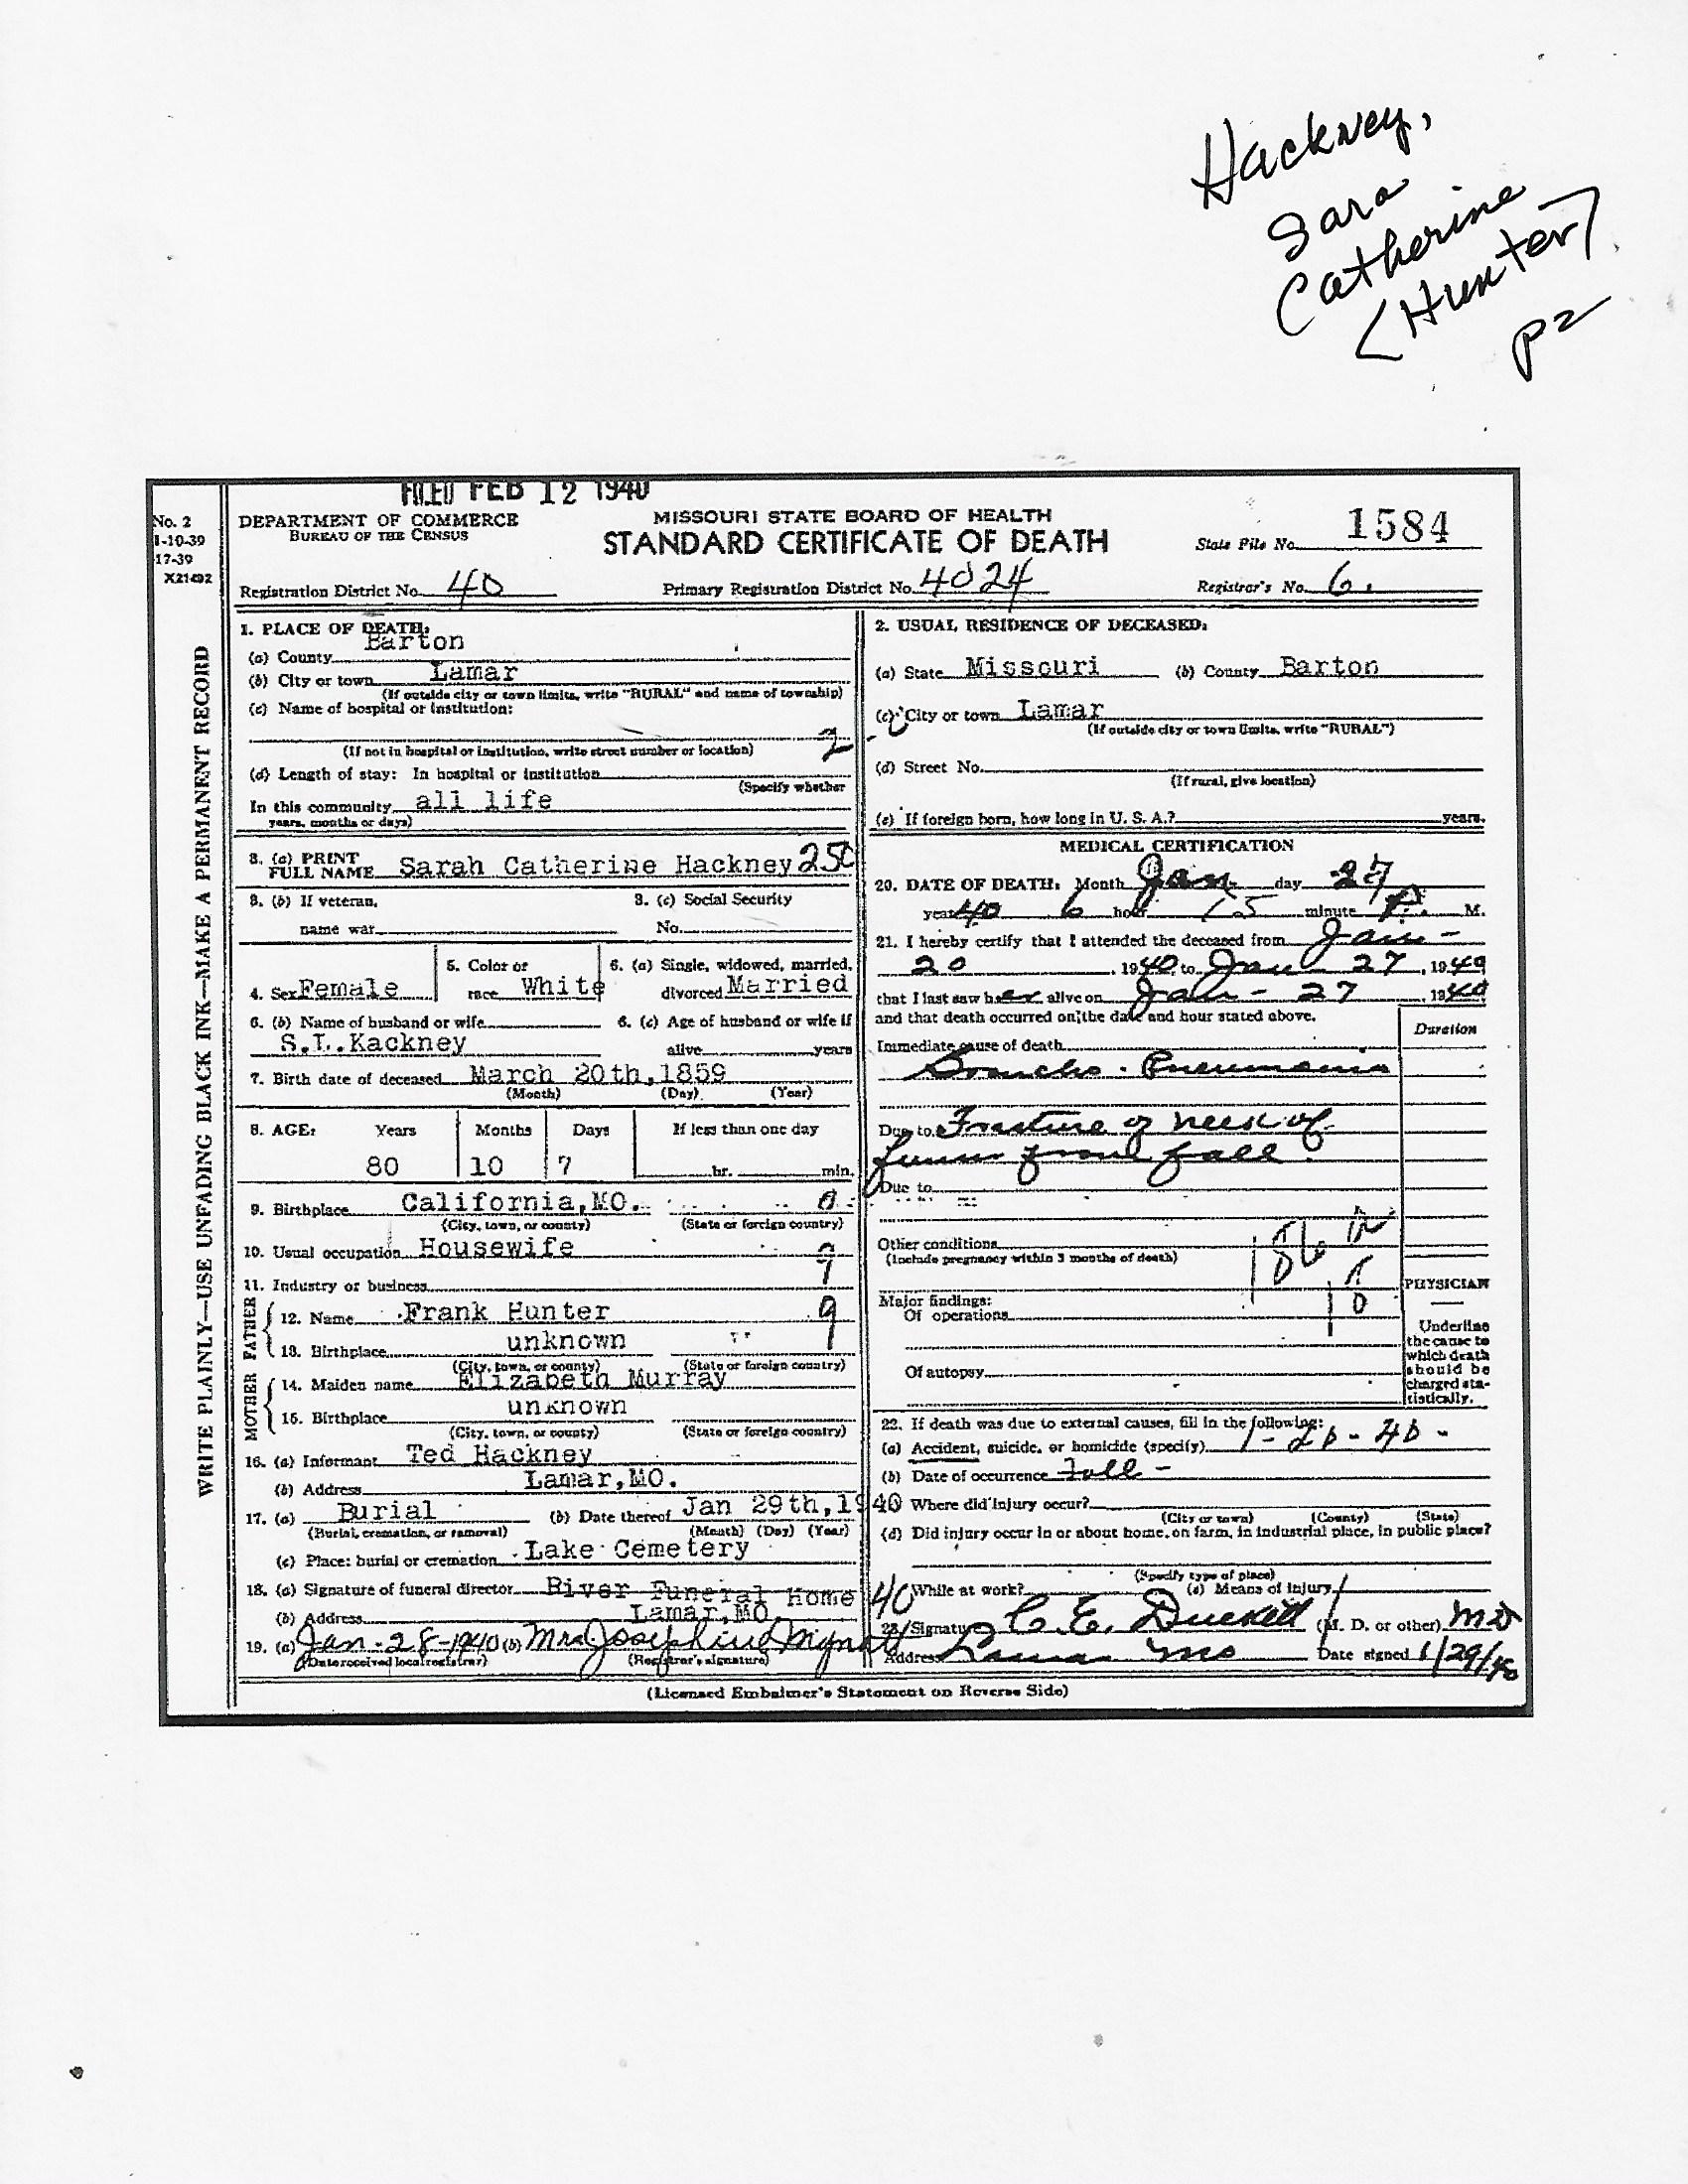 Hackney,
Sara
Catherine
<Hunter>
P2
FILED FEB 12 1940
No. 2
1-10-39
-17-39
X21492
DEPARTMENT OF COMMERCE
BUREAU OF THE CENSUS
MISSOURI STATE BOARD OF HEALTH
STANDARD CERTIFICATE OF DEATH
State File No. 1584
Registration District No. 40
Primary Registration District No. 4024
Registrar's No. 6.
WRITE PLAINLY—USE UNFADING BLACK INK—MAKE A PERMANENT RECORD
1. PLACE OF DEATH:
(a) County Barton
(b) City or town Lamar
(If outside city or town limits, write "RURAL" and name of township)
(c) Name of hospital or institution:
2
(If not in hospital or institution, write street number or location)
(d) Length of stay: In hospital or institution
(Specify whether
In this community all life
years, months or days)
3. (a) PRINT
FULL NAME Sarah Catherine Hackney 250
3. (b) If veteran,
name war
3. (c) Social Security
No.
4. Sex Female
5. Color or
race White
6. (a) Single, widowed, married,
divorced Married
6. (b) Name of husband or wife
S.L. Kackney
6. (c) Age of husband or wife if
alive years
7. Birth date of deceased March 20th, 1859
(Month) (Day) (Year)
8. AGE: Years Months Days If less than one day
80 10 7 hr. min.
9. Birthplace California, MO. 0
(City, town, or county) (State or foreign country)
10. Usual occupation Housewife
9
11. Industry or business
FATHER
12. Name Frank Hunter 9
13. Birthplace unknown
(City, town, or county) (State or foreign country)
MOTHER
14. Maiden name Elizabeth Murray
15. Birthplace unknown
(City, town, or county) (State or foreign country)
16. (a) Informant Ted Hackney
(b) Address Lamar, MO.
17. (a) Burial (b) Date thereof Jan 29th, 1940
(Burial, cremation, or removal) (Month) (Day) (Year)
(c) Place: burial or cremation Lake Cemetery
18. (a) Signature of funeral director River Funeral Home
(b) Address Lamar, MO.
19. (a) Jan-28-1940 (b) Mrs Josephine
(Date received local registrar) (Registrar's signature)
2. USUAL RESIDENCE OF DECEASED:
(a) State Missouri (b) County Barton
(c) City or town Lamar
(If outside city or town limits, write "RURAL")
(d) Street No.
(If rural, give location)
(e) If foreign born, how long in U. S. A.? years.
MEDICAL CERTIFICATION
20. DATE OF DEATH: Month Jan day 27
year 40 6 hour 15 minute P. M.
21. I hereby certify that I attended the deceased from Jan-
20, 1940, to Jan 27, 1940
that I last saw her alive on Jan- 27, 1940
and that death occurred on the date and hour stated above.
Duration
Immediate cause of death
Broncho-Pneumonia
Due to Fracture of neck of
femur from fall.
Due to
Other conditions
(Include pregnancy within 3 months of death)
PHYSICIAN
Major findings:
Of operations
Of autopsy
Underline
the cause to
which death
should be
charged sta-
tistically.
22. If death was due to external causes, fill in the following:
(a) Accident, suicide, or homicide (specify) 1-20-40-
(b) Date of occurrence Fall-
Where did injury occur?
(City or town) (County) (State)
(d) Did injury occur in or about home, on farm, in industrial place, in public place?
(Specify type of place)
40 While at work? (e) Means of injury
23. Signature C. E. Duckett (M. D. or other) MD
Address Lamar Mo Date signed 1/29/40
(Licensed Embalmer's Statement on Reverse Side)